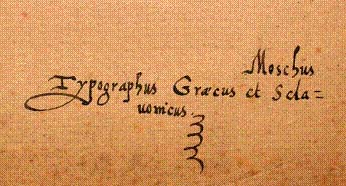 Moschus
Typographus Græcus et Scla=
uonicus.